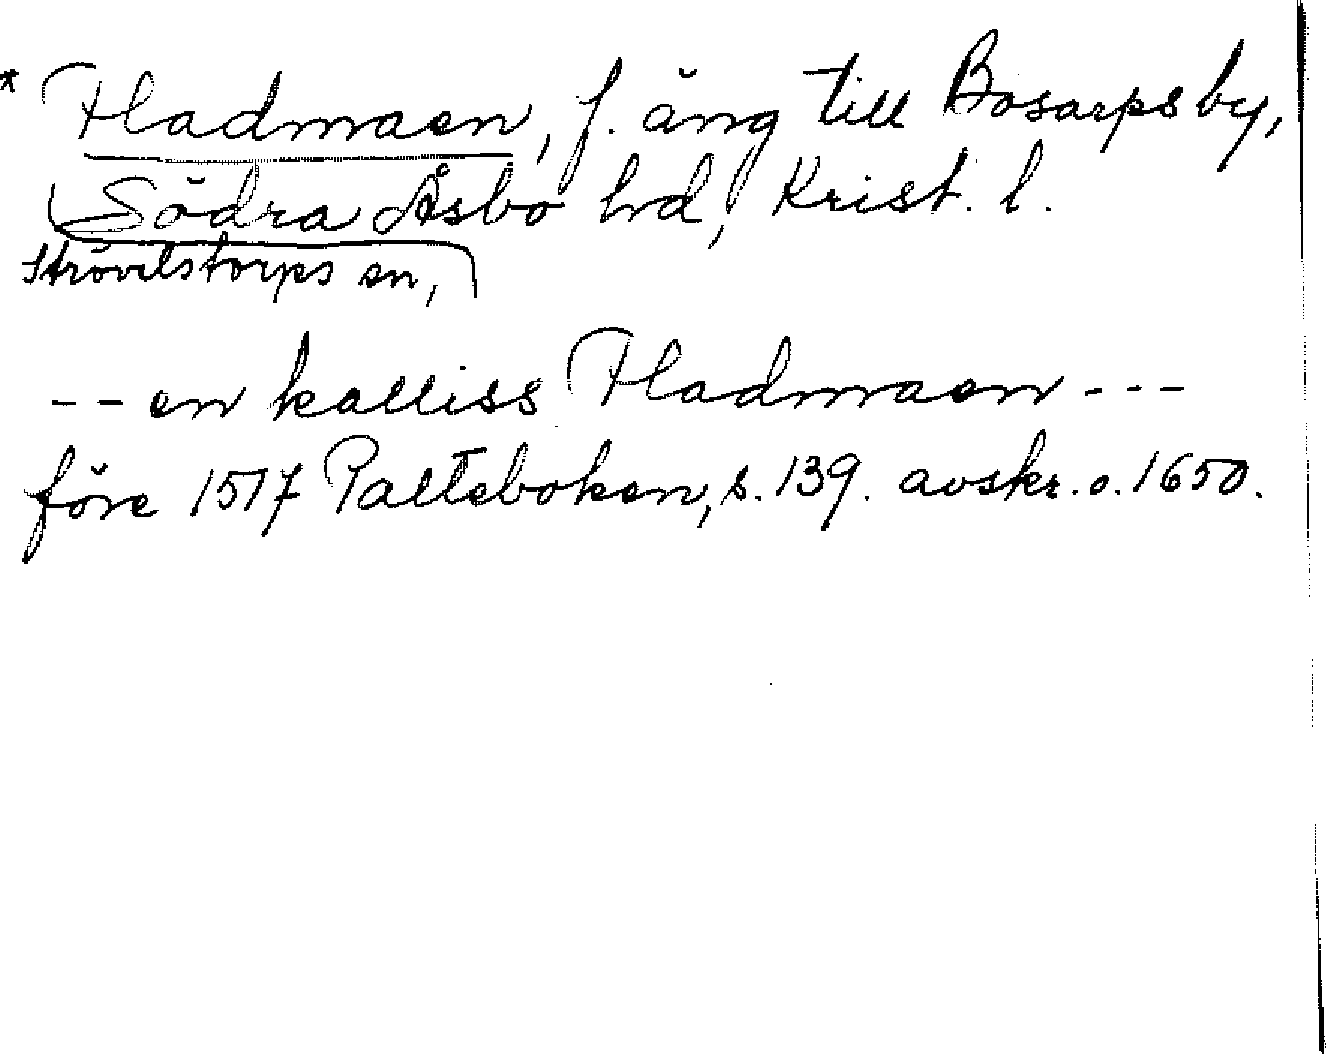 * Fladmaen, f. äng till Bosarps by,
Södra Åsbo hd, Krist. l.
Strövelstorps sn,
-- en kalliss Fladmaen ---
före 1517 Palteboken, s. 139. avskr. o. 1650.